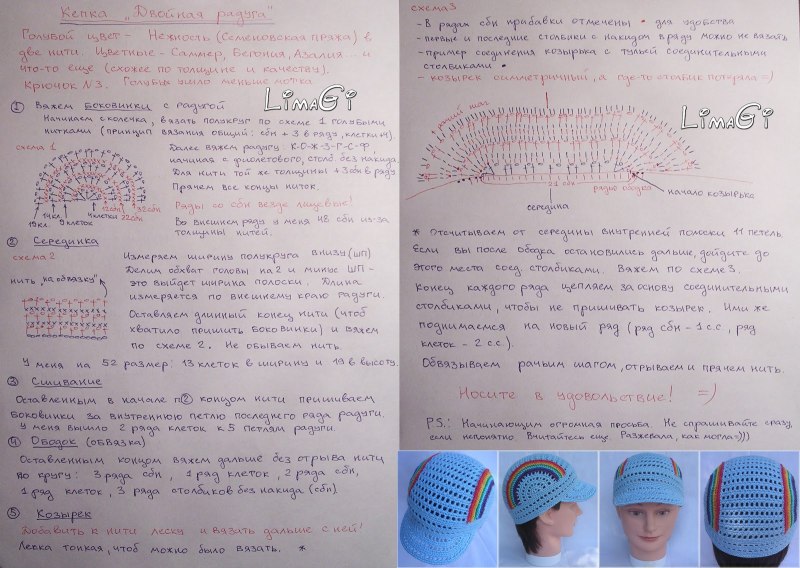 Кепка „Двойная радуга"
Голубой цвет - Нежность (Семеновская пряжа) в
две нити. Цветные - Саммер, Бегония, Азалия... и
что-то еще (схожее по толщине и качеству).
Крючок №3. Голубых ушло меньше мотка
LimaGi
① Вяжем Боковинки с радугой
Начинаем с колечка, вязать полукруг по схеме 1 голубыми
нитками (принцип вязания общий: сбн +3 в ряду, клетки +4).
схема 1
Далее вяжем радугу: К-О-Ж-З-Г-С-Ф
начиная с фиолетового, столб. без накида.
Для нити той же толщины +3сбн в ряду
Прячем все концы ниток.
Ряды со сбн везде лицевые!
Во внешнем ряду у меня 48 сбн из-за
толщины нитей.
19кл. 14кл 9 клеток 4клетки 12сбн 22сбн 32сбн
② Серединка
схема 2
нить „на обвязку"
Измеряем ширину полукруга внизу (ШП)
Делим обхват головы на 2 и минус ШП -
это выйдет ширина полоски. Длина
измеряется по внешнему краю радуги.
Оставляем длинный конец нити (чтоб
хватило пришить Боковинки) и вяжем
по схеме 2. Не обываем нить.
У меня на 52 размер: 13 клеток в ширину и 19 в высоту.
③ Сшивание
Оставленным в начале п② концом нити пришиваем
Боковинки за внутреннюю петлю последнего ряда радуги.
У меня вышло 2 ряда клеток к 5 петлям радуги.
④ Ободок (обвязка)
Оставленным концом вяжем дальше без отрыва нити
по кругу: 3 ряда сбн, 1 ряд клеток, 2 ряда сбн,
1 ряд клеток, 3 ряда столбиков без накида (сбн)
⑤ Козырек
Добавить к нити леску и вязать дальше с ней!
Леска тонкая, чтоб можно было вязать. *
схема 3
- В рядах сбн прибавки отмечены • для удобства
- первые и последние столбики с накидом в ряду можно не вязать
- пример соединения козырька с тульей соединительными
столбиками
- козырек симметричный, а где-то столбик потеряла =)
LimaGi
рачий шаг
21 сбн
ряды ободка
начало козырька
середина
* Отсчитываем от середины внутренней полоски 11 петель.
Если вы после ободка остановились дальше, дойдите до
этого места соед. столбиками. Вяжем по схеме 3.
Конец каждого ряда цепляем за основу соединительными
столбиками, чтобы не пришивать козырек. Ими же
поднимаемся на новый ряд (ряд сбн - 1 с.с., ряд
клеток - 2 с.с.)
Обвязываем рачьим шагом, отрываем и прячем нить.
Носите в удовольствие! =)
PS.: Начинающим огромная просьба. Не спрашивайте сразу,
если непонятно. Вчитайтесь еще. Разжевала, как могла =)))